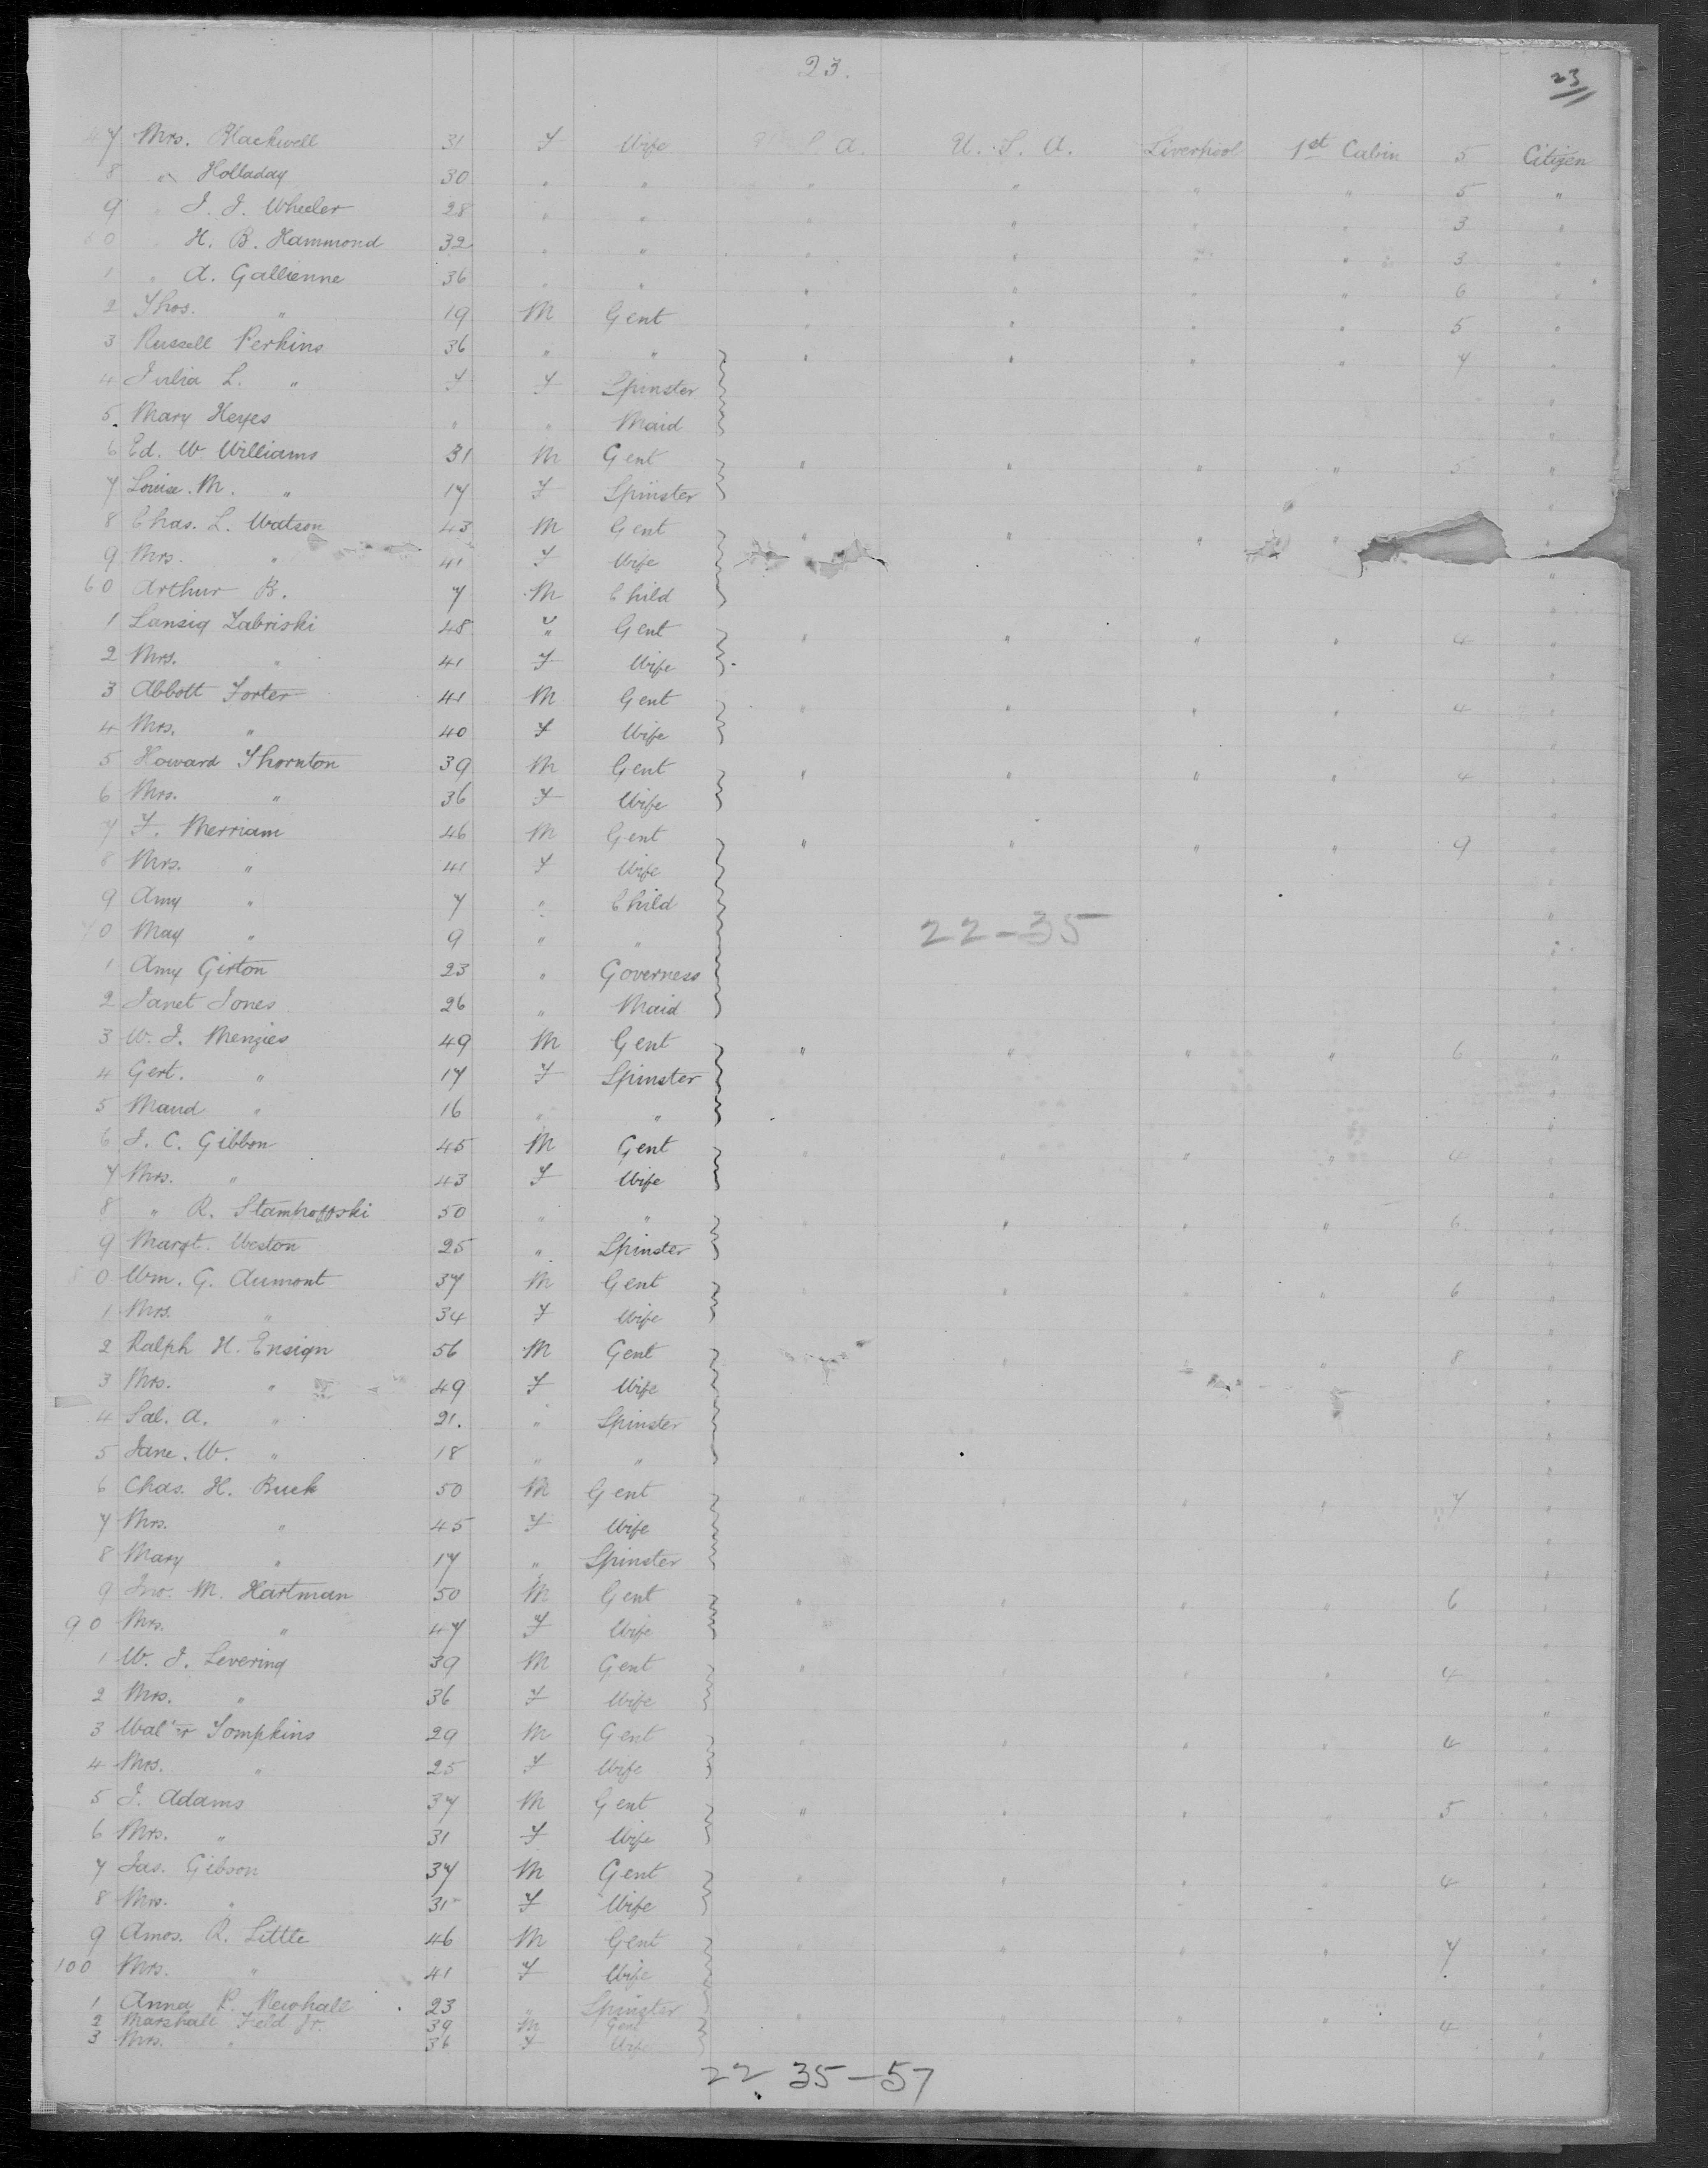 23.
23
47 Mrs. Blackwell 31 F Wife U. S. A. U. S. A. Liverpool 1st Cabin 5 Citizen
8 " Holladay 30 " " " " " " 5 "
9 " J. J. Wheeler 28 " " " " " " 3 "
50 " H. B. Hammond 32 " " " " " " 3 "
1 " A. Gallienne 36 " " " " " " 6 "
2 Thos. " 19 M Gent " " " " 5 "
3 Russell Perkins 36 " " " " " " 7 "
4 Julia L. " 7 F Spinster "
5. Mary Heyes " " Maid "
6 Ed. W. Williams 31 M Gent " " " " 5 "
7 Louise. M. " 17 F Spinster "
8 Chas. L. Watson 43 M Gent " " " " "
9 Mrs. " 41 F Wife "
60 Arthur B. 7 M Child "
1 Lansig Zabriski 48 " Gent " " " " 4 "
2 Mrs. " 41 F Wife "
3 Abbott Forter 41 M Gent " " " " 4 "
4 Mrs. " 40 F Wife "
5 Howard Thornton 39 M Gent " " " " 4 "
6 Mrs. " 36 F Wife "
7 F. Merriam 46 M Gent " " " " 9 "
8 Mrs. " 41 F Wife "
9 Amy " 7 " Child "
70 May " 9 " " 22-35 "
1 Amy Girton 23 " Governess "
2 Janet Jones 26 " Maid "
3 W. J. Menzies 49 M Gent " " " " 6 "
4 Gert. " 17 F Spinster "
5 Maud " 16 " " "
6 J. C. Gibbon 45 M Gent " " " " 4 "
7 Mrs. " 43 F Wife "
8 " R. 50 " " " " " " 6 "
9 Margt. Weston 25 " Spinster "
80 Wm. G. Dumont 37 M Gent " " " " 6 "
1 Mrs. " 34 F Wife "
2 Ralph H. Ensign 56 M Gent " " " 8 "
3 Mrs. " 49 F Wife "
4 Sal. A. " 21. " Spinster "
5 Jane. W. " 18 " " "
6 Chas. H. Buck 50 M Gent " " " " 7 "
7 Mrs. " 45 F Wife "
8 Mary " 17 " Spinster "
9 Jno. M. Hartman 50 M Gent " " " " 6 "
90 Mrs. " 47 F Wife "
1 W. J. Levering 39 M Gent " " " " 4 "
2 Mrs. " 36 F Wife "
3 Walter Tompkins 29 M Gent " " " " 4 "
4 Mrs. " 25 F Wife "
5 J. Adams 37 M Gent " " " " 5 "
6 Mrs. " 31 F Wife "
7 Jas. Gibson 37 M Gent " " " " 4 "
8 Mrs. " 31 F Wife "
9 Amos. R. Little 46 M Gent " " " " 7 "
100 Mrs. " 41 F Wife "
1 Anna P. Newhall 23 " Spinster "
2 Marshall Field Jr. 39 M Gent " " " " 4 "
3 Mrs. " 36 F Wife "
22. 35-57